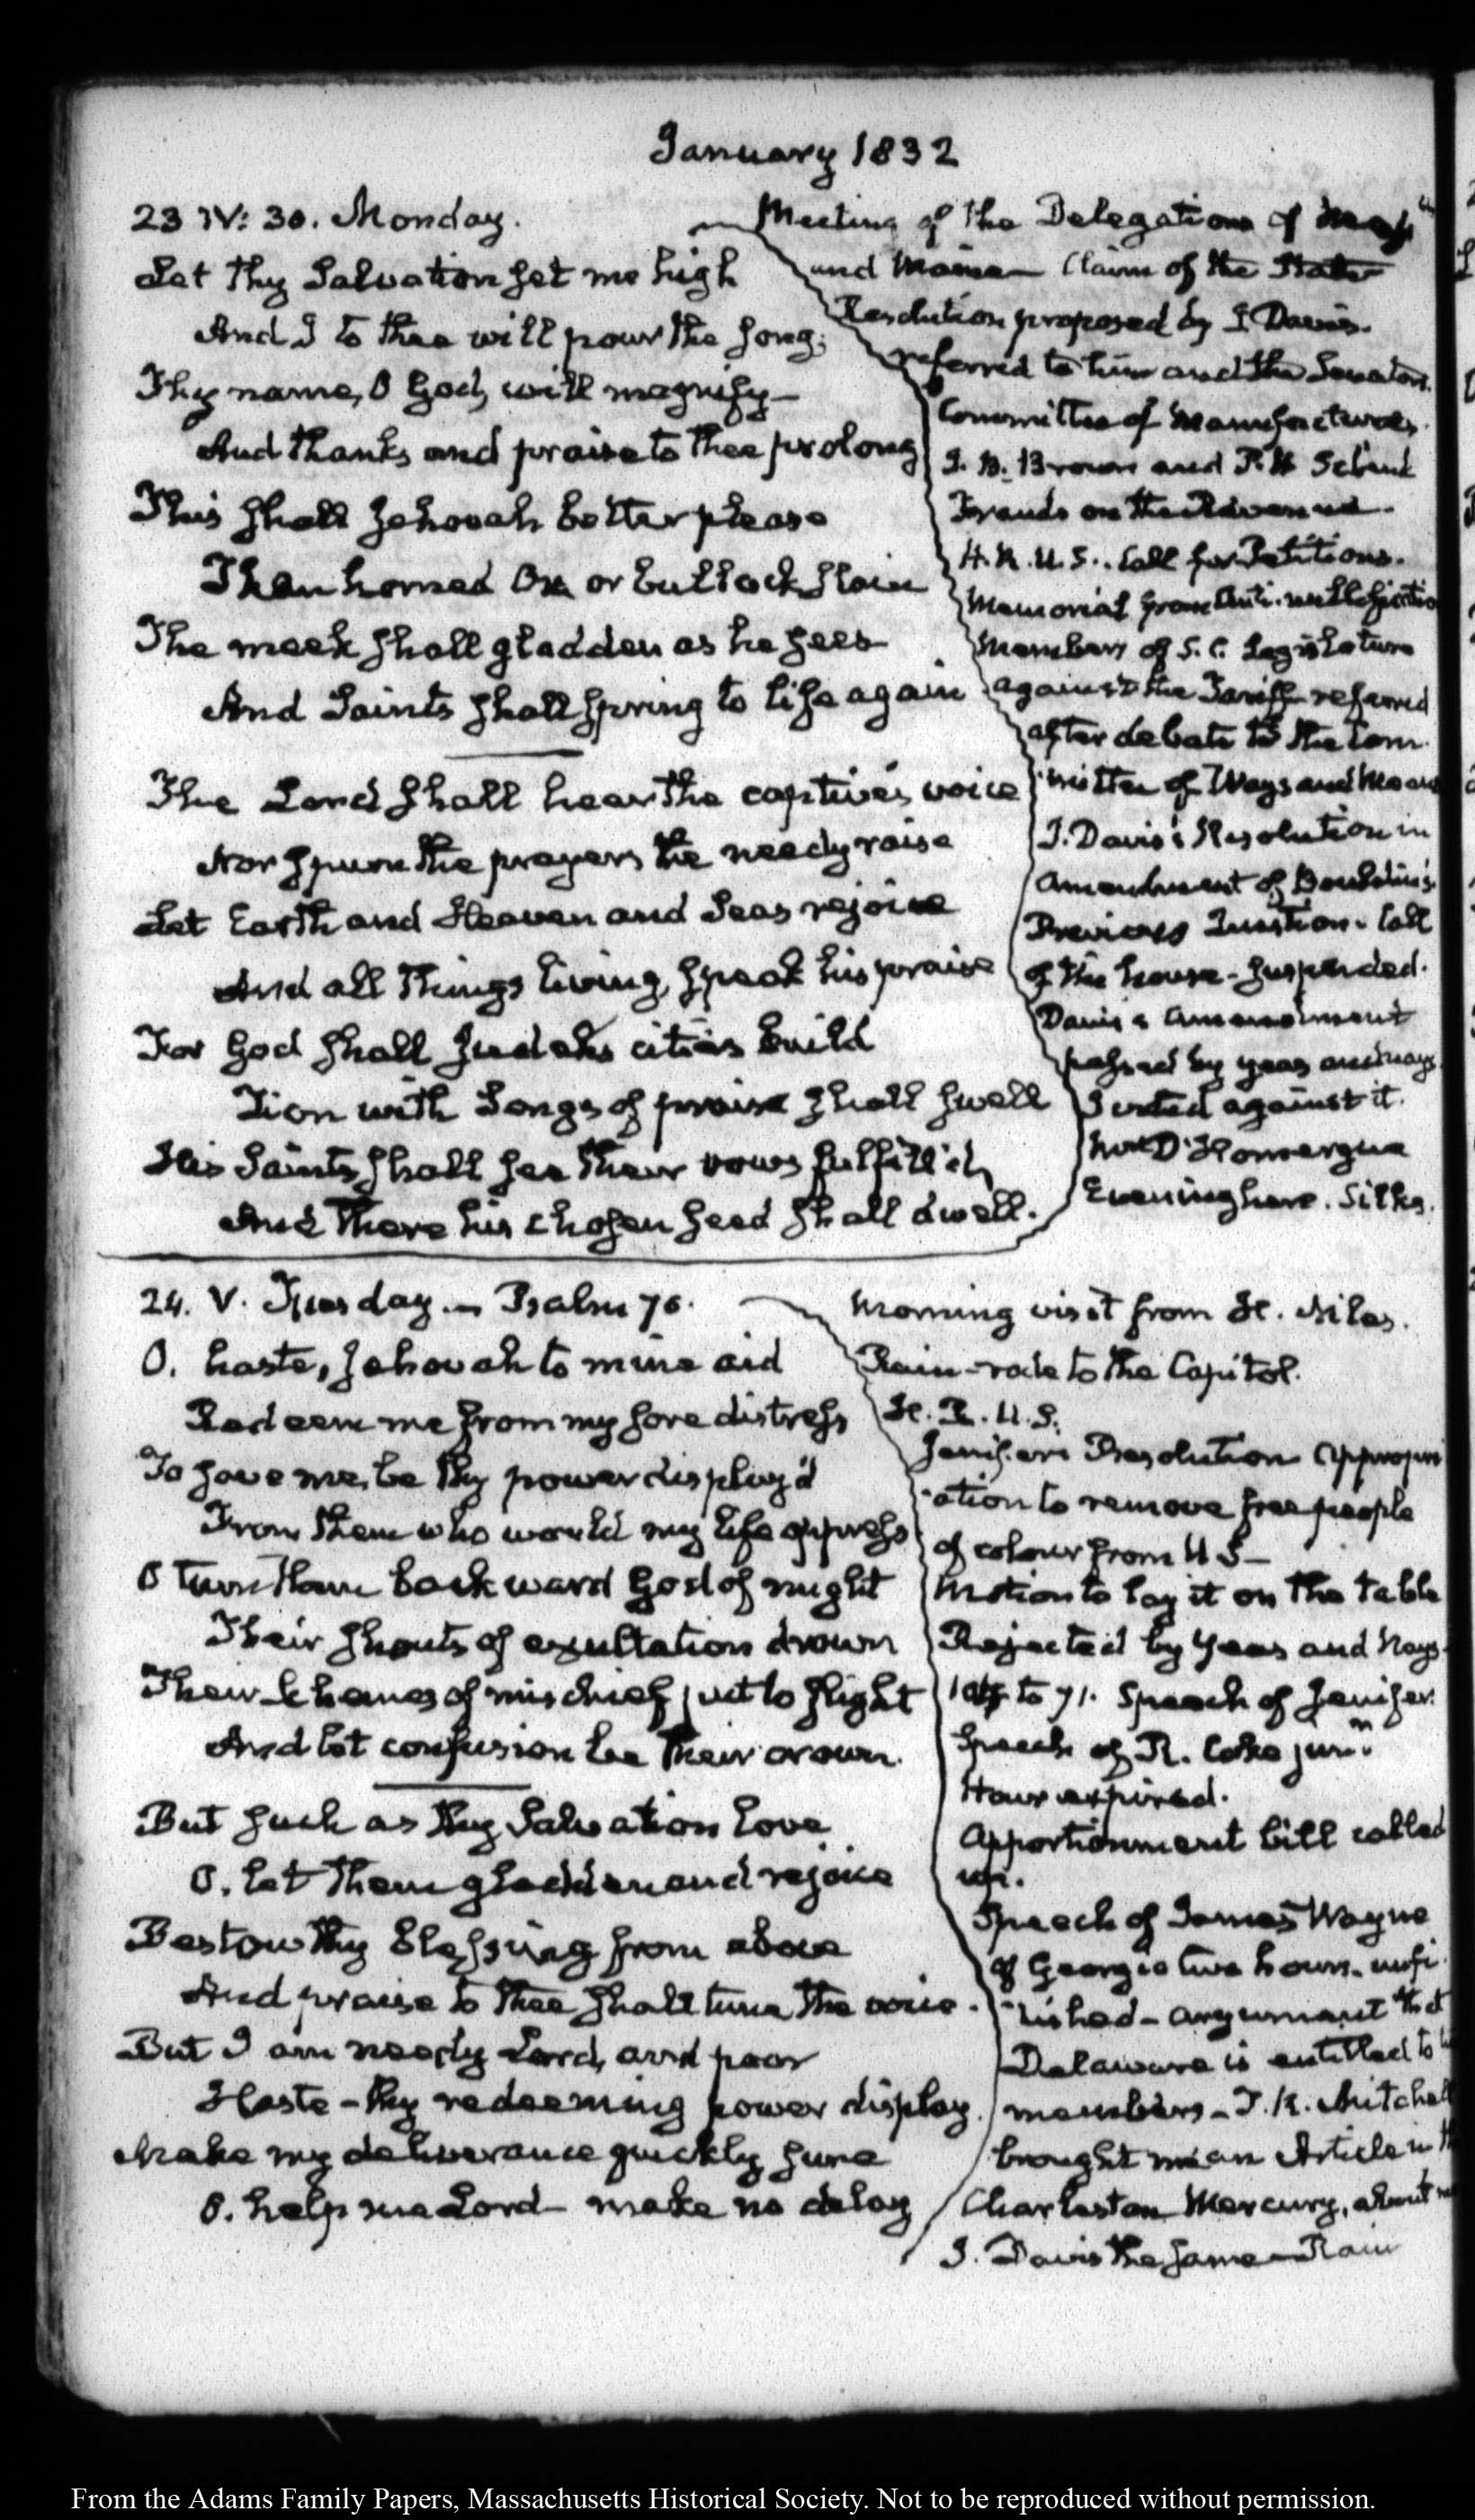 January 1832
23 IV: 30. Monday.
Let thy Salvation set me high
And I to thee will pour the song;
Thy name, O God, will magnify—
And thanks and praise to thee prolong
This shall Jehovah better please
Than horned Ox or bullock slain
The meek shall gladden as he sees
And Saints shall spring to life again
The Lord shall hear the captive's voice
Nor spurn the prayers the needy raise
Let Earth and Heaven and Seas rejoice
And all things living, speak his praise
For God shall Judah's cities build
Zion with Songs of praise shall swell
His Saints shall see their vows fulfill'd,
And there his chosen seed shall dwell.
Meeting of the Delegations of
and Maine— Claim of the States
Resolution proposed by J. Davis.
referred to him and the Senators.
Committee of Manufactures.
J. B. Brown and P. H. Schenk
Frauds on the Revenue.
H. R. U.S.. Call for Petitions.
Memorial from Anti-nullificatio
Members of S. C. Legislature
against the Tariff referred
after debate to the Com-
mittee of Ways and Means
J. Davis's Resolution in
amendment of Bouldin's.
Previous Question. Call
of the house - suspended.
Davis's Amendment
passed by yeas and nays
I voted against it.
D'Homergue
Evening here. Silks.
24. V. Tuesday.— Psalm 70.
O. haste, Jehovah to mine aid
Redeem me from my sore distress
To save me, be thy power display'd
From them who would my life oppress
O turn them backward God of might
Their shouts of exultation drown
Their Schemes of mischief put to flight
And let confusion be their crown.
But such as thy Salvation love
O. let them gladden and rejoice
Bestow thy blessing from above
And praise to thee shall tune the voice.
But I am needy Lord, and poor
Haste - thy redeeming power display.
Make my deliverance quickly sure
O. help me Lord— make no delay
Morning visit from H. Niles.
Rain - rode to the Capitol.
H. R. U.S.
Jenifer's Resolution Appropri
-ation to remove free people
of colour from U S—
Motion to lay it on the table
Rejected by Yeas and Nays
to 71. Speech of Jenifer.
Speech of R. Coke junr.
Hour expired.
Apportionment bill called
up.
Speech of James Wayne
of Georgia two hours. unfi-
nished - argument that
Delaware is entitled to
members - T. R. Mitchell
brought me an Article in th
Charleston Mercury, about me
J. Davis the same— Rain
From the Adams Family Papers, Massachusetts Historical Society. Not to be reproduced without permission.